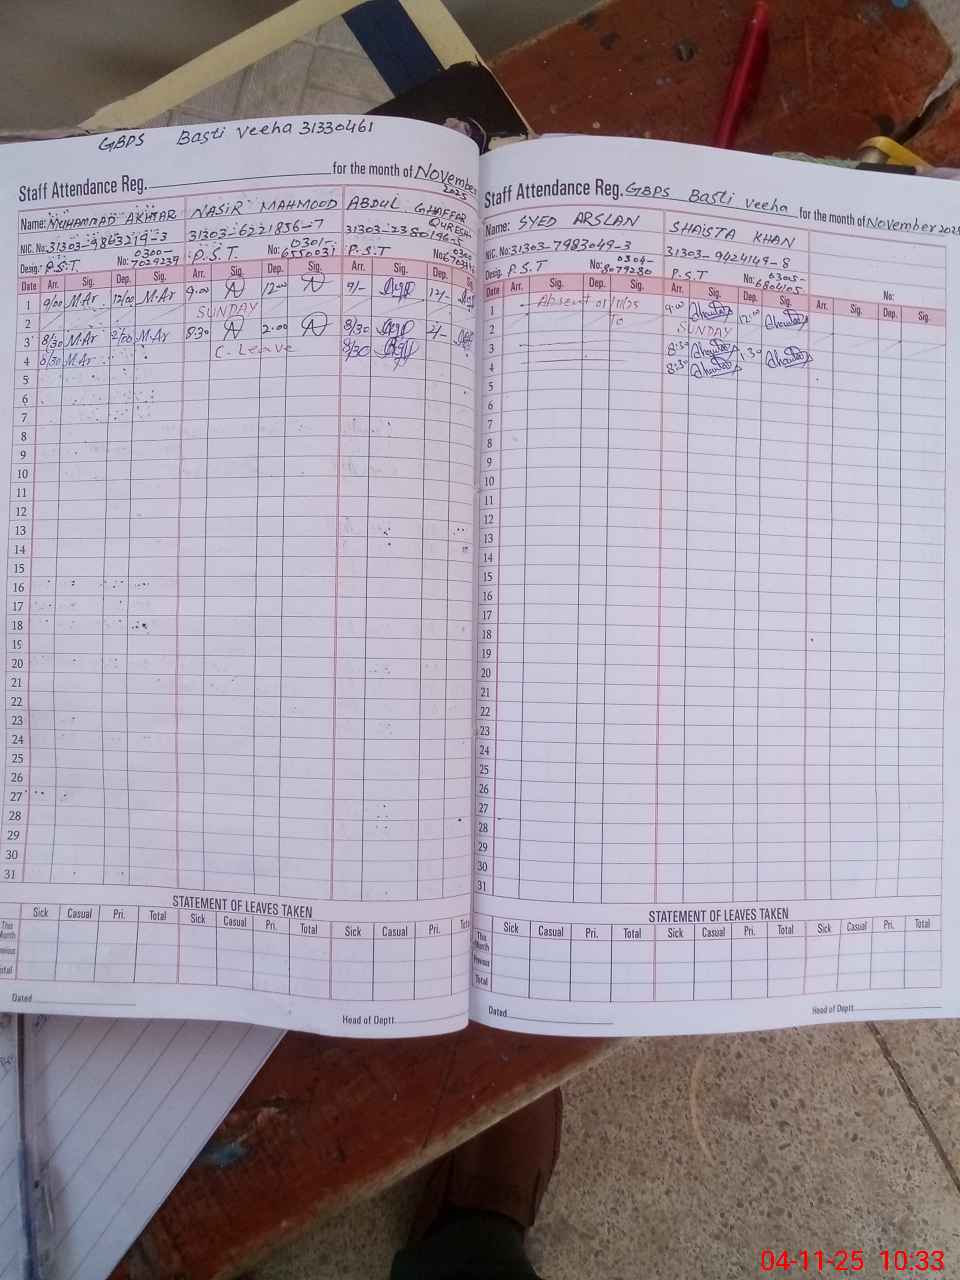 GBPS Basti veeha 31330461
Staff Attendance Reg. for the month of November 2025
Name: MUHAMMAD AKHTAR NASIR MAHMOOD ABDUL GHAFFAR QURESHI
NIC. No: 31303-9863219-3 31303-6221856-7 31303-2380196-5
Desig: P.S.T No: 0300-7029239 P.S.T No: 0301-6550031 P.S.T
Date Arr. Sig. Dep. Sig. Arr. Sig. Dep. Sig. Arr. Sig. Dep. Sig.
1 9/00 M.Ar 12/00 M.Ar 9.00 12.00 9/- 12/-
2 SUNDAY
3 8/30 M.Ar 2/00 M.Ar 8.30 2.00 8/30 2/-
4 8/30 M.Ar C. Leave 8/30
5
6
7
8
9
10
11
12
13
14
15
16
17
18
19
20
21
22
23
24
25
26
27
28
29
30
31
STATEMENT OF LEAVES TAKEN
Sick Casual Pri. Total Sick Casual Pri. Total Sick Casual Pri.
This Month
Total
Dated
Head of Deptt.
Staff Attendance Reg. GBPS Basti veeha for the month of November 2025
Name: SYED ARSLAN SHAISTA KHAN
NIC. No: 31303-7983049-3 31303-9424149-8
Desig: P.S.T No: 0304-8079280 P.S.T No: 0305-6804105 No:
Date Arr. Sig. Dep. Sig. Arr. Sig. Dep. Sig. Arr. Sig. Dep. Sig.
1 Absent 01/11/25 9.00 12.00
2 to SUNDAY
3 8:30 1.30
4 8:30
5
6
7
8
9
10
11
12
13
14
15
16
17
18
19
20
21
22
23
24
25
26
27
28
29
30
31
STATEMENT OF LEAVES TAKEN
Sick Casual Pri. Total Sick Casual Pri. Total Sick Casual Pri. Total
This Month
Previous
Total
Dated
Head of Deptt.
04-11-25 10:33